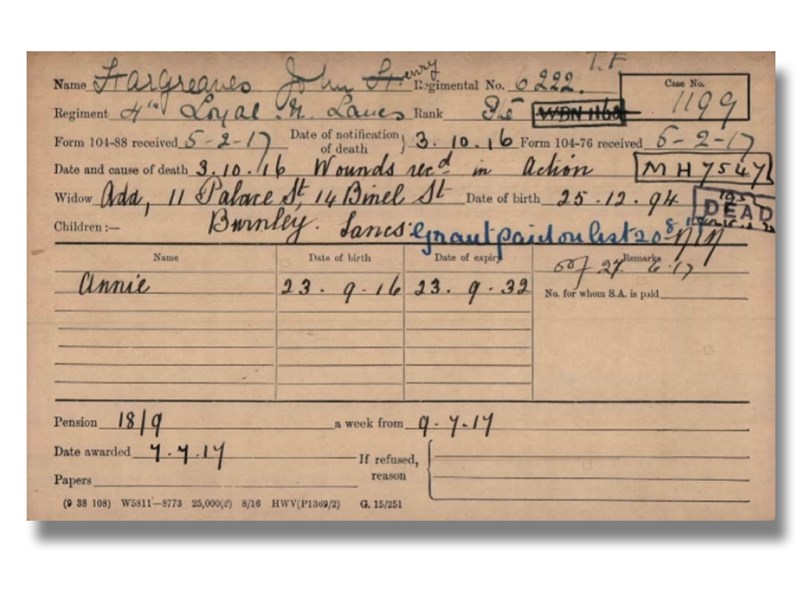 T.F
Name Hargreaves John Henry Regimental No. 6222. Case No. 1199
Regiment 4th Loyal N. Lancs Rank Pte WBN 1162
Form 104-88 received 5-2-17 Date of notification of death 3.10.16 Form 104-76 received 5-2-17
Date and cause of death 3.10.16 Wounds recd in Action MH7547
Widow Ada, 11 Palace St, 14 Binel St Date of birth 25.12.94 DEAD
Children:— Burnley. Lancs Grant paid on list 208
Name Date of birth Date of expiry Remarks
27 6.17
Annie 23.9.16 23.9.32 No. for whom S.A. is paid
Pension 18/9 a week from 9-7-17
Date awarded 7.7.17 If refused, reason
Papers
(9 38 108) W5811—8773 25,000(2) 8/16 HWV(P1369/2) G. 15/251